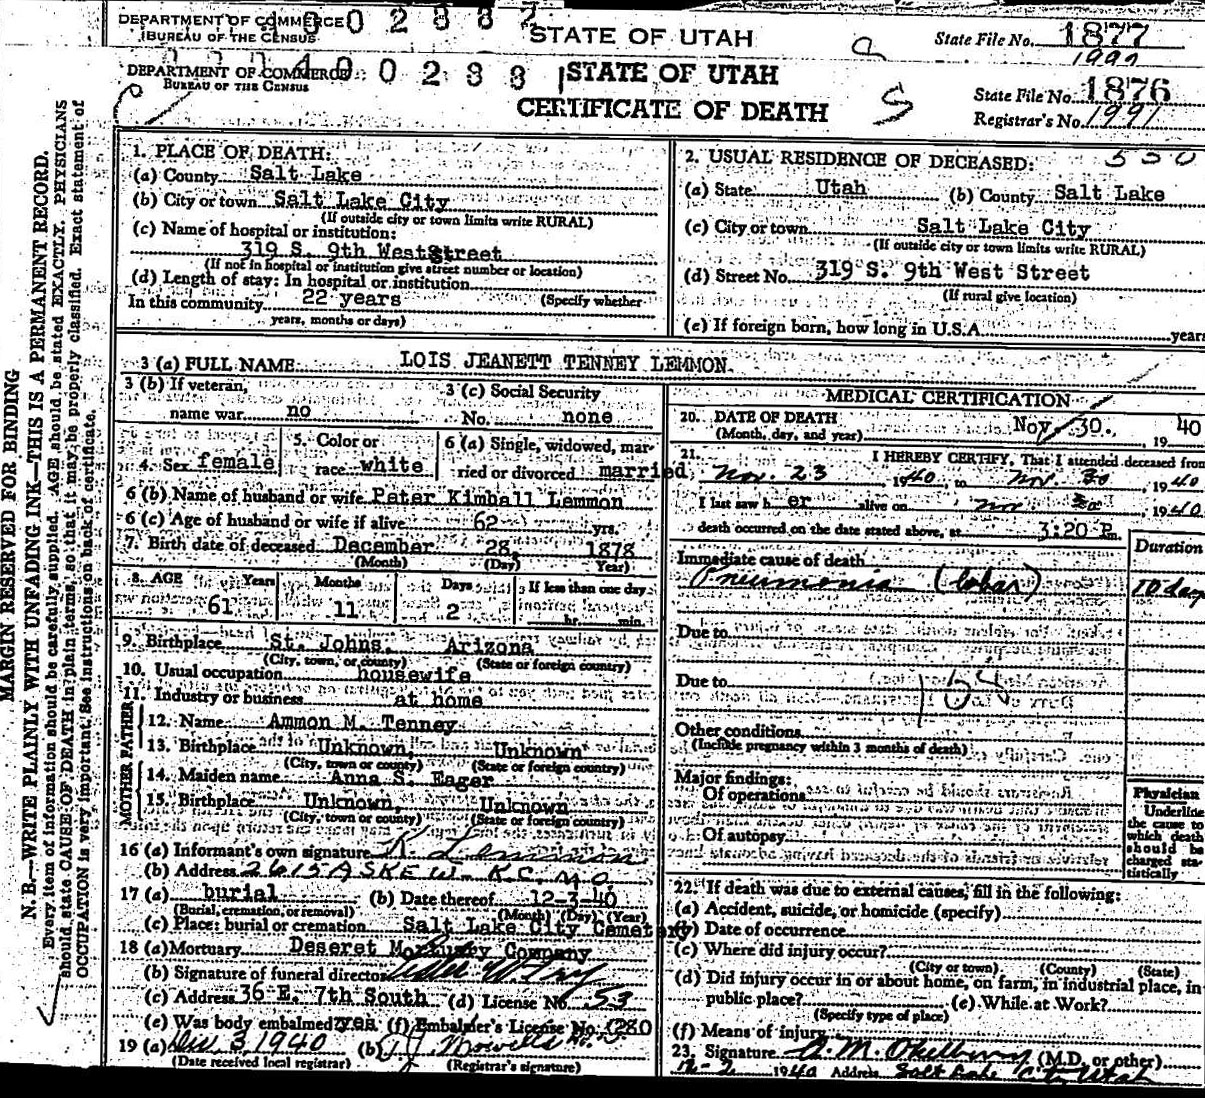 DEPARTMENT OF COMMERCE
BUREAU OF THE CENSUS
STATE OF UTAH
State File No. 1877
1992
DEPARTMENT OF COMMERCE
BUREAU OF THE CENSUS
STATE OF UTAH
CERTIFICATE OF DEATH
State File No. 1876
Registrar's No. 1991
MARGIN RESERVED FOR BINDING
N. B.—WRITE PLAINLY WITH UNFADING INK—THIS IS A PERMANENT RECORD.
Every item of information should be carefully supplied. AGE should be stated EXACTLY. PHYSICIANS
should state CAUSE OF DEATH in plain terms, so that it may be properly classified. Exact statement of
OCCUPATION is very important. See instructions on back of certificate.
1. PLACE OF DEATH:
(a) County Salt Lake
(b) City or town Salt Lake City
(If outside city or town limits write RURAL)
(c) Name of hospital or institution:
319 S. 9th West Street
(If not in hospital or institution give street number or location)
(d) Length of stay: In hospital or institution
In this community 22 years (Specify whether
years, months or days)
2. USUAL RESIDENCE OF DECEASED:
(a) State Utah (b) County Salt Lake
(c) City or town Salt Lake City
(If outside city or town limits write RURAL)
(d) Street No. 319 S. 9th West Street
(If rural give location)
(e) If foreign born, how long in U.S.A. years
3 (a) FULL NAME LOIS JEANETT TENNEY LEMMON.
3 (b) If veteran,
name war no
3 (c) Social Security
No. none
4. Sex female
5. Color or
race white
6 (a) Single, widowed, mar-
ried or divorced married
6 (b) Name of husband or wife Peter Kimball Lemmon
6 (c) Age of husband or wife if alive 62 yrs.
7. Birth date of deceased December 28, 1878
(Month) (Day) (Year)
8. AGE Years Months Days If less than one day
61 11 2 hr. min.
9. Birthplace St. Johns, Arizona
(City, town, or county) (State or foreign country)
10. Usual occupation housewife
11. Industry or business at home
FATHER
12. Name Ammon M. Tenney
13. Birthplace Unknown, Unknown
(City, town or county) (State or foreign country)
MOTHER
14. Maiden name Anna S. Eager
15. Birthplace Unknown, Unknown
(City, town or county) (State or foreign country)
16 (a) Informant's own signature K. Lemmon
(b) Address 2615 ASKEW - K.C. MO
17 (a) burial (b) Date thereof 12-3-40
(Burial, cremation, or removal) (Month) (Day) (Year)
(c) Place: burial or cremation Salt Lake City Cemetery
18 (a) Mortuary Deseret Mortuary Company
(b) Signature of funeral director
(c) Address 36 E. 7th South (d) License No. 53
(e) Was body embalmed? yes (f) Embalmer's License No. 280
19 (a) Dec 3, 1940 (b)
(Date received local registrar) (Registrar's signature)
MEDICAL CERTIFICATION
20. DATE OF DEATH Nov. 30. 19 40
(Month, day, and year)
21. I HEREBY CERTIFY, That I attended deceased from
Nov. 23, 1940, to Nov. 30, 1940
I last saw h er alive on Nov. 30, 1940
death occurred on the date stated above, at 3:20 P.m.
Duration
Immediate cause of death
Pneumonia (lobar) 10 day
Due to
Due to
Other conditions
(Include pregnancy within 3 months of death)
Major findings:
Of operations
Of autopsy
Physician
Underline
the cause to
which death
should be
charged sta-
tistically
22. If death was due to external causes, fill in the following:
(a) Accident, suicide, or homicide (specify)
(b) Date of occurrence
(c) Where did injury occur?
(City or town) (County) (State)
(d) Did injury occur in or about home, on farm, in industrial place, in
public place? (e) While at Work?
(Specify type of place)
(f) Means of injury
23. Signature (M.D. or other)
12-2 1940 Address Salt Lake City Utah